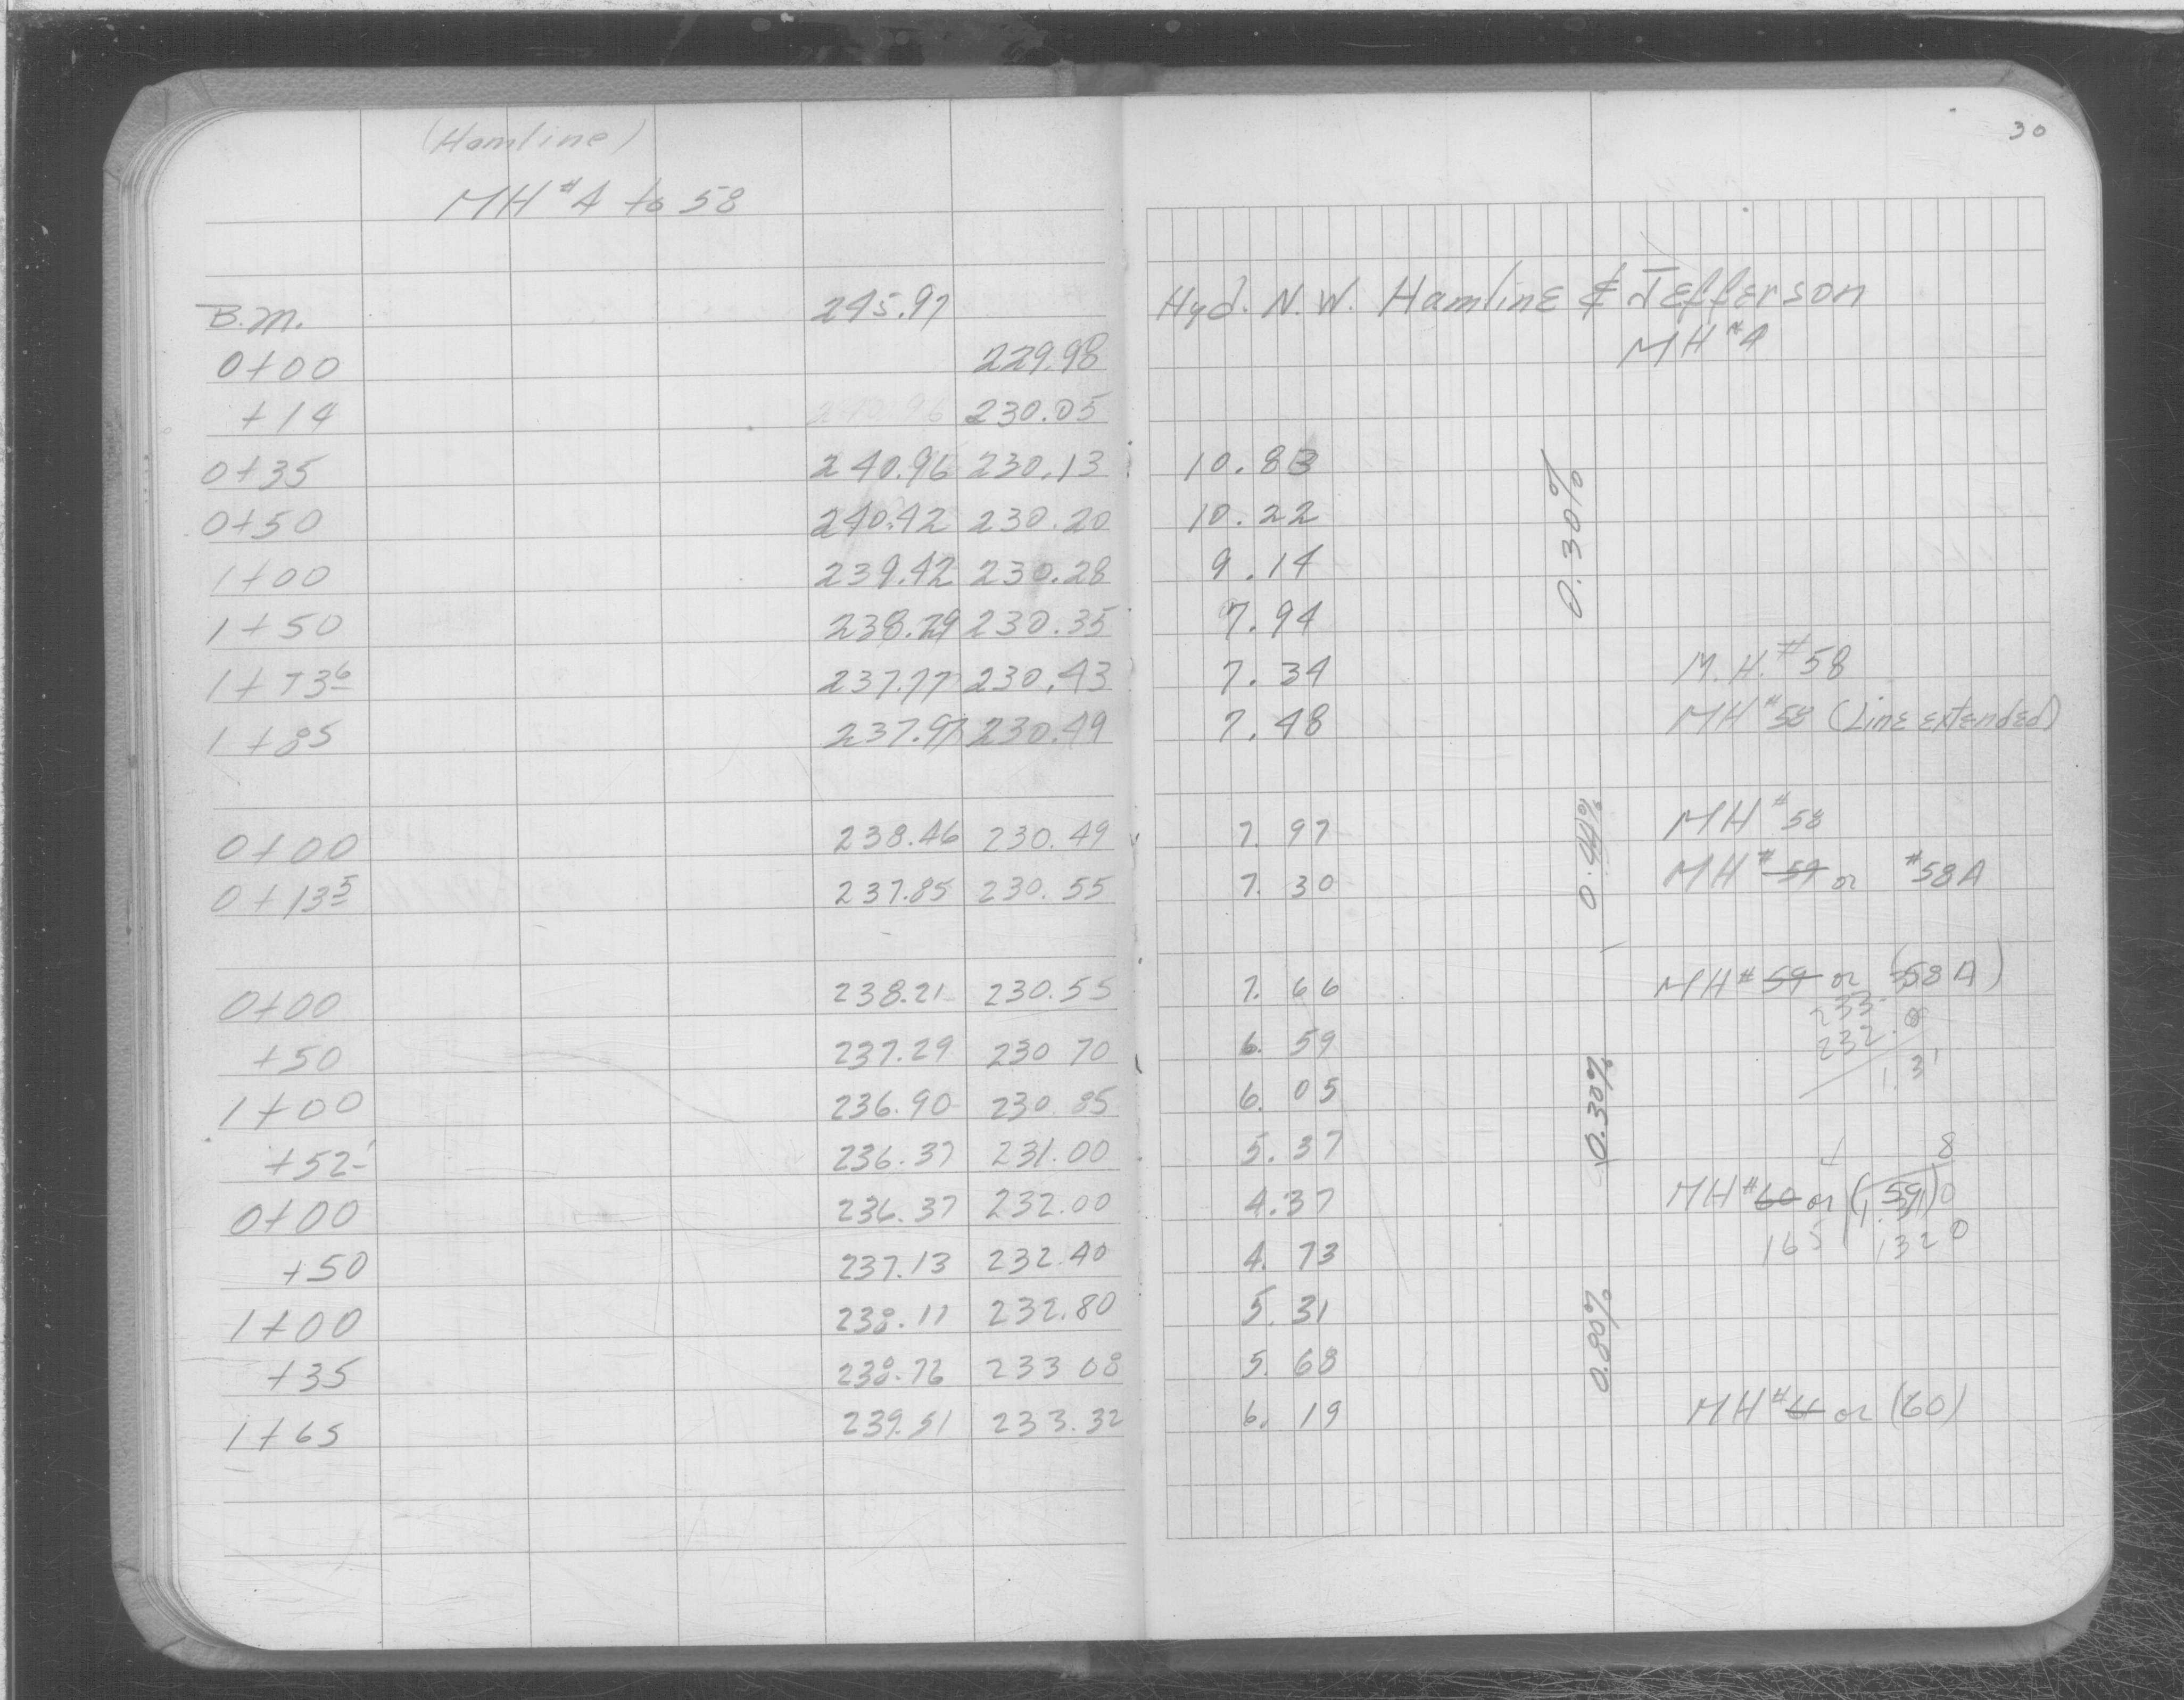 30
(Hamline)
MH #4 to 58
B.M. 245.97 Hyd. N.W. Hamline & Jefferson
0+00 229.98 MH #4
+14 240.96 230.05
0+35 240.96 230.13 10.83
0+50 240.42 230.20 10.22
0.30%
1+00 239.42 230.28 9.14
1+50 238.29 230.35 7.94
1+73 6 237.77 230.43 7.34 M.H. #58
1+85 237.97 230.49 7.48 MH #58 (Line extended)
0+00 238.46 230.49 7.97 MH #58
0.44%
0+13 5 237.85 230.55 7.30 MH #59 or #58A
0+00 238.21 230.55 7.66 MH #59 or (58A)
233
232.0
1.31
+50 237.29 230 70 6.59
1+00 236.90 230 85 6.05
0.30%
+52 236.37 231.00 5.37
8
0+00 236.37 232.00 4.37 MH #60 or (59)
165 1320
+50 237.13 232.40 4.73
1+00 238.11 232.80 5.31
0.80%
+35 238.76 233 08 5.68
1+65 239.51 233.32 6.19 MH #61 or (60)